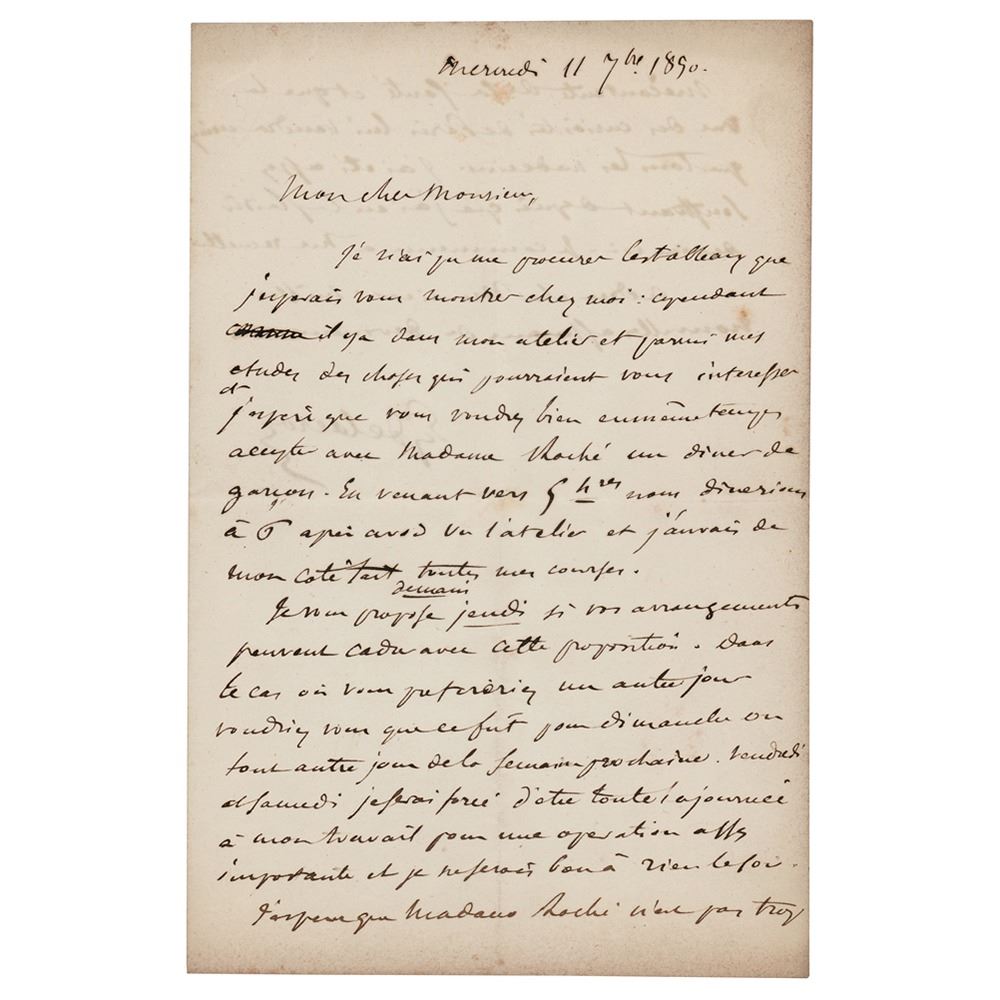 Mercredi 11 7bre 1850.
Mon cher Monsieur,
Je n'ai pu me procurer les tableaux que
j'esperais vous montrer chez moi : cependant
il y a dans mon atelier et parmi mes
etudes des choses qui pourraient vous interesser
et
j'espere que vous voudrez bien en même temps
accepter avec Madame Roché un diner de
garçon. En venant vers 5 hres nous dinerions
à 6 après avoir vu l'atelier et j'aurais de
mon coté fait toutes mes courses.
demain
Je vous propose jeudi si vos arrangements
peuvent cadrer avec cette proposition. Dans
le cas où vous prefereriez un autre jour
voudriez vous que ce fût pour dimanche ou
tout autre jour de la semaine prochaine. Vendredi
et samedi je serai forcé d'etre toute la journée
à mon travail pour une operation assez
importante et je ne serais bon à rien le soir.
J'espere que Madame Roché n'est pas trop